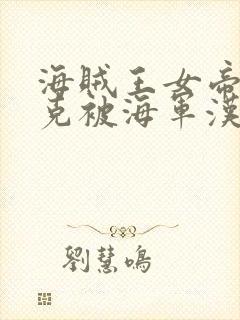 海賊王女帝
克被海軍漢
劉慧鳴